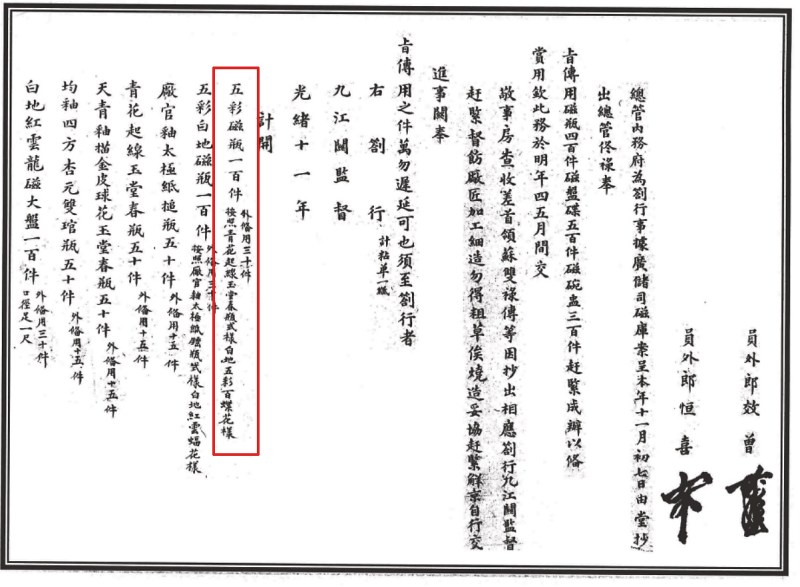 員外郎效曾
員外郎恒喜
總管內務府為劄行事據廣儲司磁庫案呈本年十一月初七日由堂抄
出總管佟祿奉
旨傳用磁瓶四百件磁盤碟五百件磁碗盅三百件赶緊成辦以俻
賞用欽此務於明年四五月間交
敬事房查收差首領蘇雙祿傳等因抄出相應劄行九江關監督
赶緊督飭廠匠加工細造勿得粗草俟燒造妥協赶緊解京自行交
進事關奉
旨傳用之件萬勿遲延可也須至劄行者
右劄行 計粘單一紙
九江關監督
光緒十一年
計開
五彩磁瓶一百件 外俻用三十件 按照青花起線玉堂春瓶式樣白地五彩百蝶花樣
五彩白地磁瓶一百件 外俻用三十件 按照廠官釉太極紙鎚瓶式樣白地紅雲蝠花樣
廠官釉太極紙搥瓶五十件 外俻用十五件
青花起線玉堂春瓶五十件 外俻用十五件
天青釉描金皮球花玉堂春瓶五十件 外俻用十五件
均釉四方杏元雙琯瓶五十件 外俻用十五件
白地紅雲龍磁大盤一百件 外俻用三十件 口徑足一尺